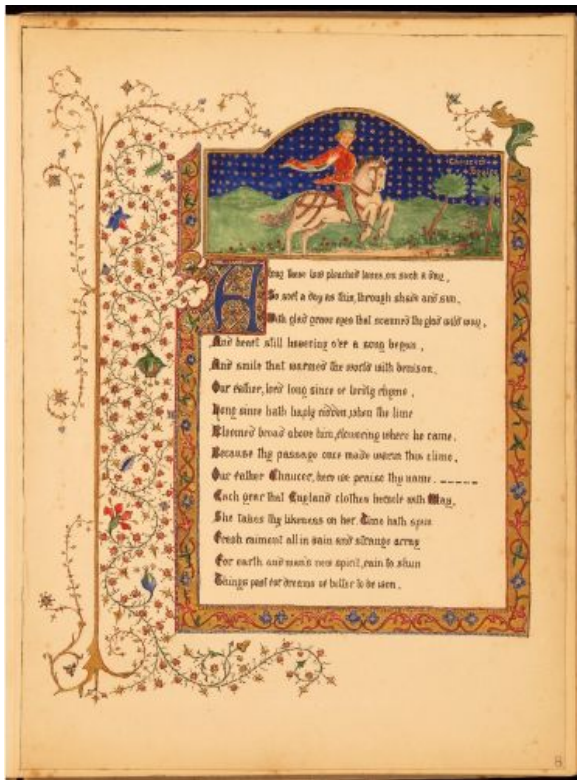 Chaucer's
Squire
Along these low pleached lanes, on such a day,
So soft a day as this, through shade and sun,
With glad grave eyes that scanned the glad wild way,
And heart still hovering o'er a song begun,
And smile that warmed the world with benison,
Our father, lord long since of lordly rhyme,
Long since hath haply ridden, when the lime
Bloomed broad above him, flowering where he came.
Because thy passage once made warm this clime,
Our father Chaucer, here we praise thy name.
Each year that England clothes herself with May,
She takes thy likeness on her. Time hath spun
Fresh raiment all in vain and strange array
For earth and man's new spirit, fain to shun
Things past for dreams of better to be won,
8